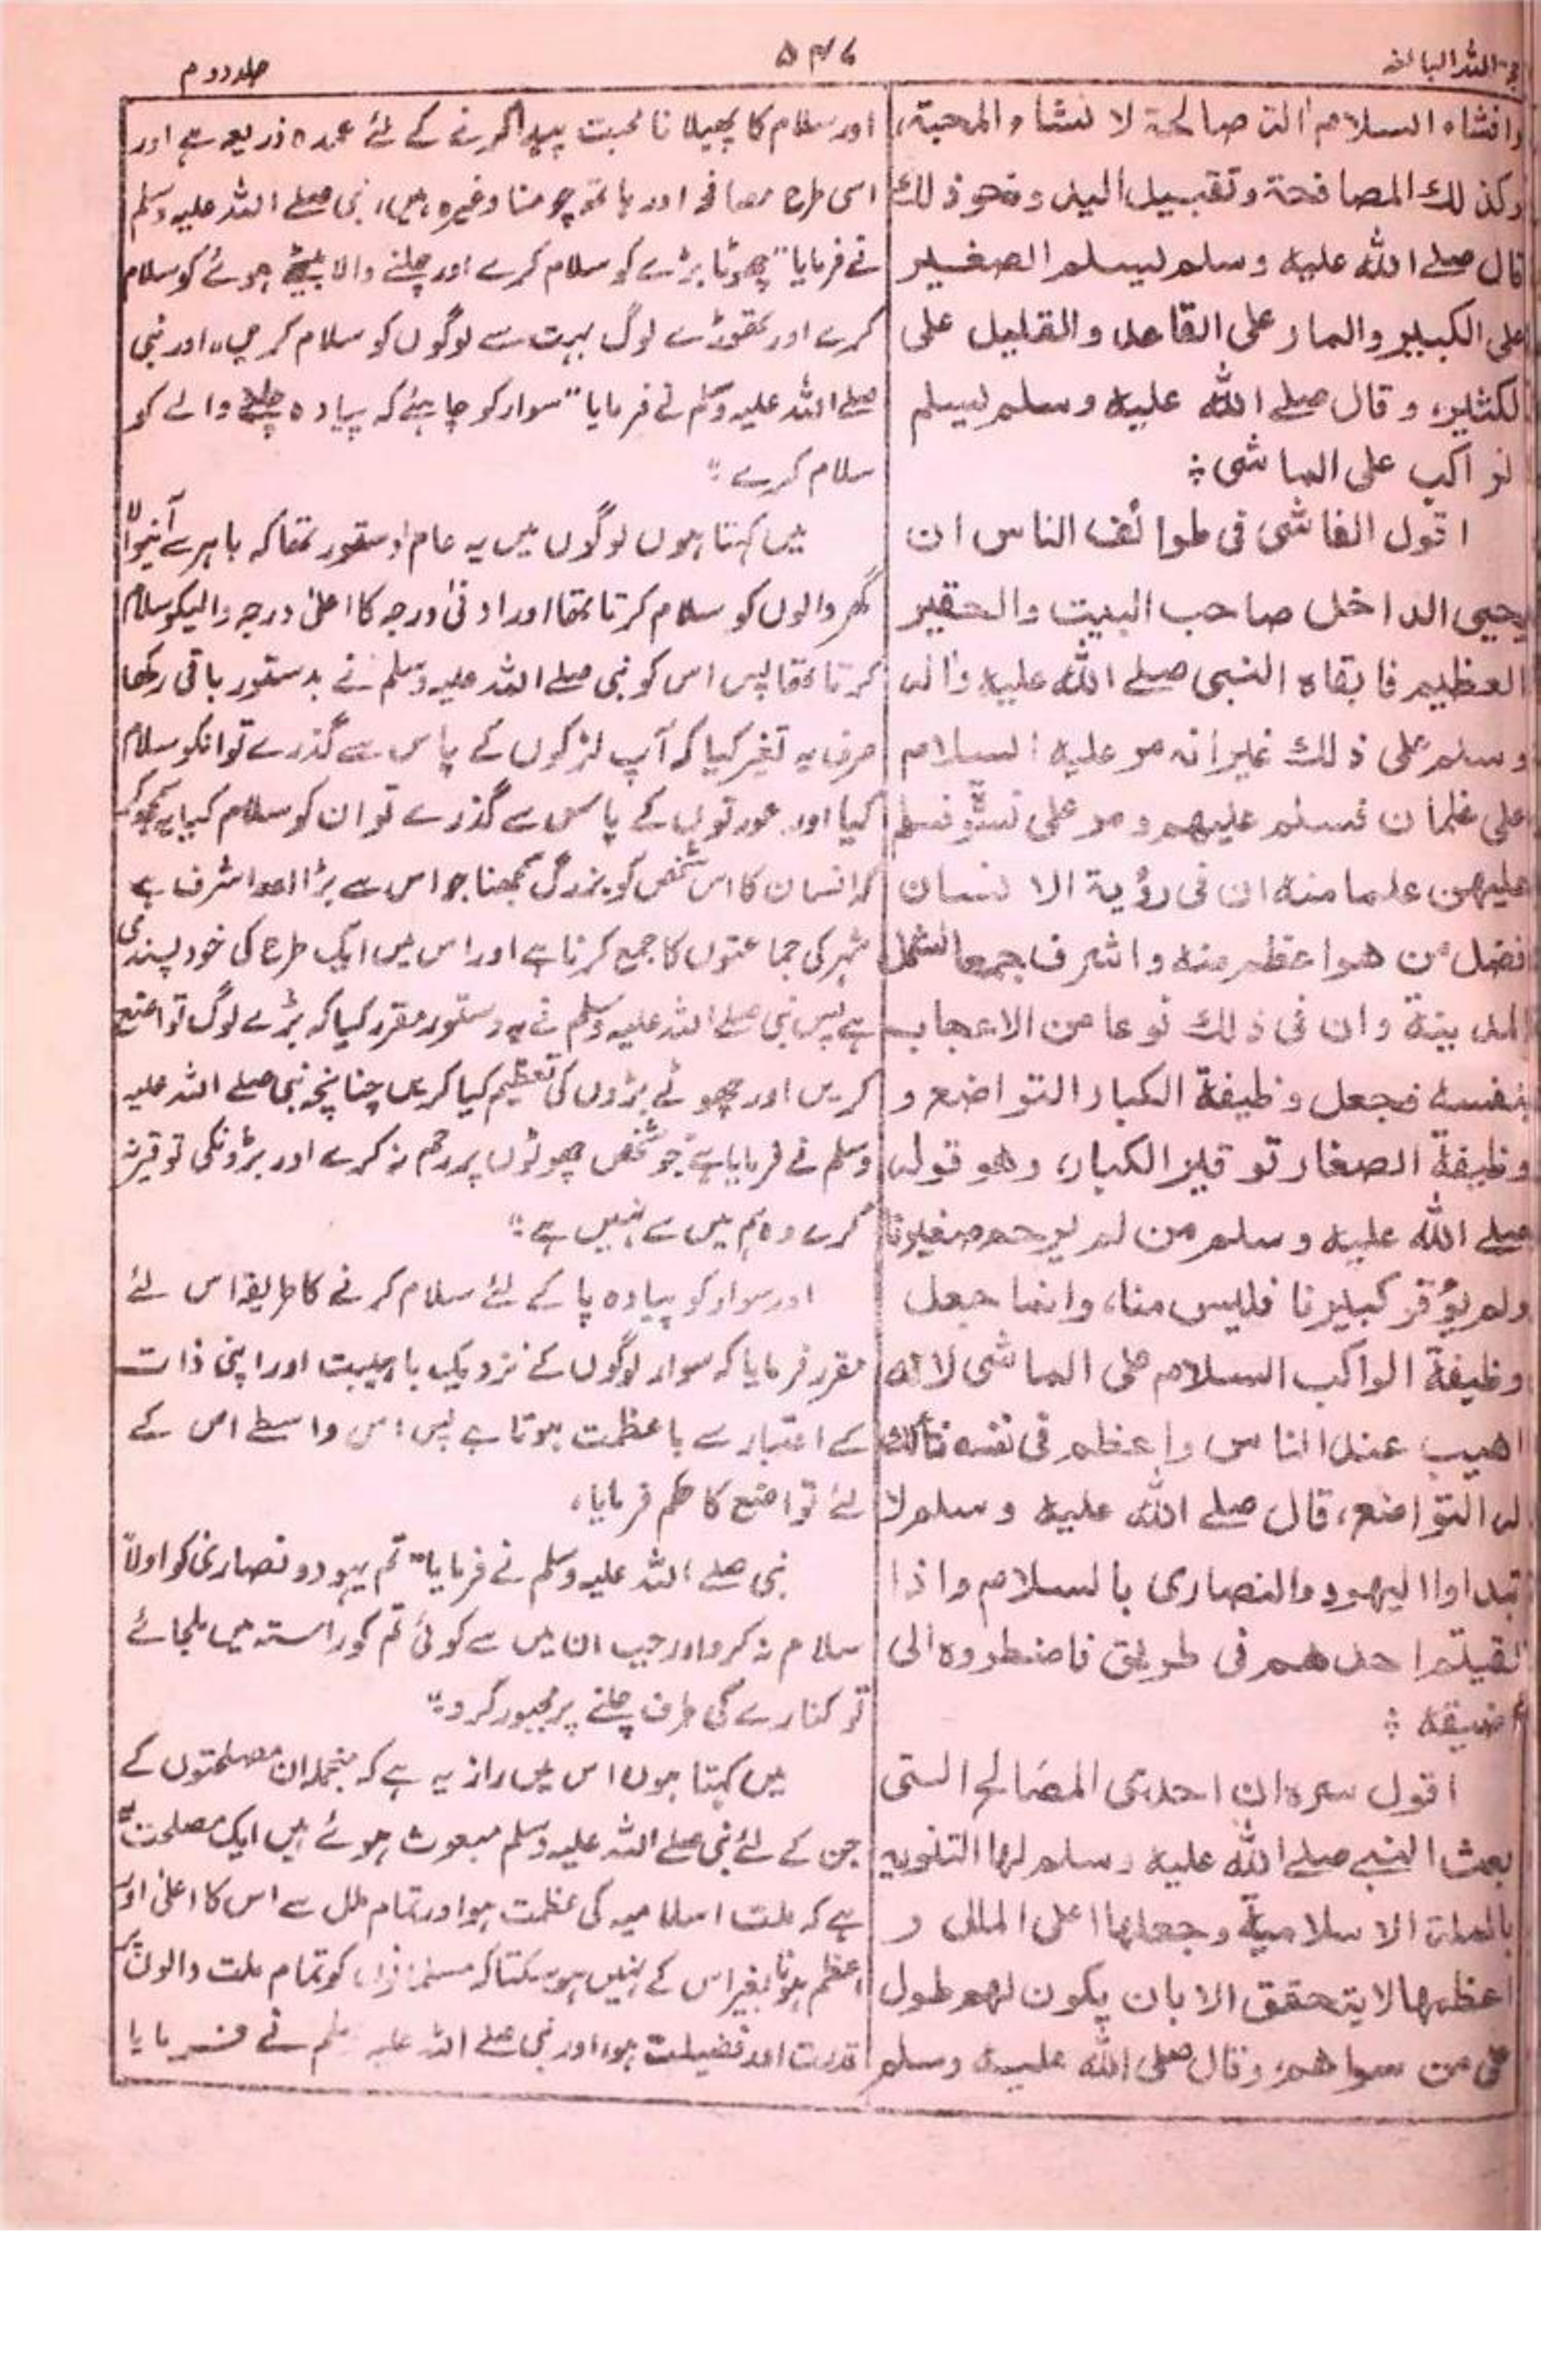 حجة اللہ البالغہ
۵۴۶
جلد دوم
وافشاء السلام اٰلة صالحة لانشاء المحبة،
وكذلك المصافحة وتقبيل اليد ونحو ذلك
قال صلے الله عليه وسلم ليسلم الصغير
على الكبير والمار على القاعد والقليل على
الكثير، وقال صلے الله عليه وسلم ليسلم
الراكب على الماشى ؞
اقول الفاشى فى طوائف الناس ان
يحيى الداخل صاحب البيت والحقير
العظيم فابقاه النبى صلے الله عليه واٰله
وسلم على ذلك غير انه مر عليه السلام
على غلمان فسلم عليهم ومر على نسوة فسلم
عليهن علما منه ان فى رؤية الانسان
فضل من هو اعظم منه واشرف جمعا لشمل
المدينة وان فى ذلك نوعا من الاعجاب
بنفسه فجعل وظيفة الكبار التواضع و
وظيفة الصغار توقير الكبار، وهو قوله
صلے الله عليه وسلم من لم يرحم صغيرنا
ولم يؤقر كبيرنا فليس منا، وانما جعل
وظيفة الراكب السلام على الماشى لانه
اهيب عند الناس واعظم فى نفسه فأكد
له التواضع، قال صلے الله عليه وسلم لا
تبداوا اليهود والنصارى بالسلام واذا
لقيتم احدهم فى طريق فاضطروه الى
اضيقه ؞
اقول سره ان احدى المصالح التى
بعث النبے صلے الله عليه وسلم لها التنويه
بالملة الاسلامية وجعلها اعلى الملل و
اعظمها لا يتحقق الا بان يكون لهم طول
على من سواهم، وقال صلى الله عليه وسلم
اور سلام کا پھیلانا محبت پیدا کرنے کے لئے عمدہ ذریعہ ہے اور
اسی طرح مصافحہ اور ہاتھ چومنا وغیرہ ہیں، نبی صلے اللہ علیہ وسلم
نے فرمایا "چھوٹا بڑے کو سلام کرے اور چلنے والا بیٹھے ہوئے کو سلام
کرے اور تھوڑے لوگ بہت سے لوگوں کو سلام کریں،، اور نبی
صلے اللہ علیہ وسلم نے فرمایا "سوار کو چاہیئے کہ پیادہ چلنے والے کو
سلام کرے "
میں کہتا ہوں لوگوں میں یہ عام دستور تھا کہ باہر سے آنیوالا
گھر والوں کو سلام کرتا تھا اور ادنیٰ درجہ کا اعلیٰ درجہ والیکو سلام
کرتا تھا پس اس کو نبی صلے اللہ علیہ وسلم نے بدستور باقی رکھا
صرف یہ تغیر کیا کہ آپ لڑکوں کے پاس سے گذرے تو انکو سلام
کیا اور عورتوں کے پاس سے گذرے تو ان کو سلام کیا یہ سمجھ کر
کہ انسان کا اس شخص کو بزرگ سمجھنا جو اس سے بڑا اور اشرف ہے
شہر کی جماعتوں کا جمع کرنا ہے اور اس میں ایک طرح کی خود پسندی
ہے پس نبی صلے اللہ علیہ وسلم نے یہ دستور مقرر کیا کہ بڑے لوگ تواضع
کریں اور چھوٹے بڑوں کی تعظیم کیا کریں چنانچہ نبی صلے اللہ علیہ
وسلم نے فرمایا ہے "جو شخص چھوٹوں پر رحم نہ کرے اور بڑونکی توقیر نہ
کرے وہ ہم میں سے نہیں ہے "
اور سوار کو پیادہ پا کے لئے سلام کرنے کا طریقہ اس لئے
مقرر فرمایا کہ سوار لوگوں کے نزدیک باہیبت اور اپنی ذات
کے اعتبار سے باعظمت ہوتا ہے پس اس واسطے اس کے
لئے تواضع کا حکم فرمایا،
نبی صلے اللہ علیہ وسلم نے فرمایا "تم یہود و نصاریٰ کو اولاً
سلام نہ کرو اور جب ان میں سے کوئی تم کو راستہ میں ملجائے
تو کنارے کی طرف چلنے پر مجبور کرو "
میں کہتا ہوں اس میں راز یہ ہے کہ منجملہ ان مصلحتوں کے
جن کے لئے نبی صلے اللہ علیہ وسلم مبعوث ہوئے ہیں ایک مصلحت یہ
ہے کہ ملت اسلامیہ کی عظمت ہو اور تمام ملل سے اس کا اعلیٰ اور
اعظم ہونا بغیر اس کے نہیں ہو سکتا کہ مسلمانوں کو تمام ملت والوں پر
قدرت اور فضیلت ہو، اور نبی صلے اللہ علیہ وسلم نے فرمایا